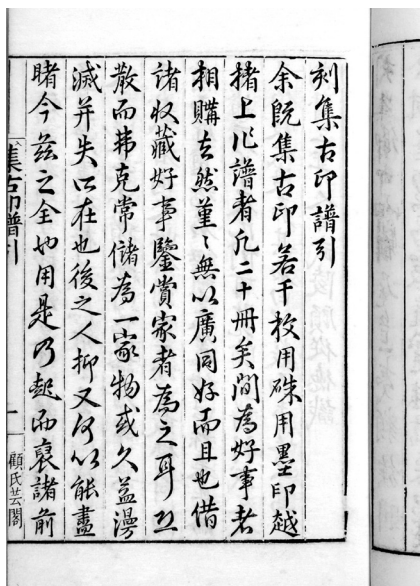 刻集古印譜引
余既集古印若干枚用硃用墨印越
楮上作譜者凡二十冊矣間為好事者
相購去然堇〻無以廣同好而且也借
諸收藏好事鑒賞家者為之耳恐
散而弗克常儲為一家物或久益漫
滅并失所在也後之人抑又何以能盡
睹今茲之全也用是乃起而裒諸前
集古印譜引 一 顧氏芸閣